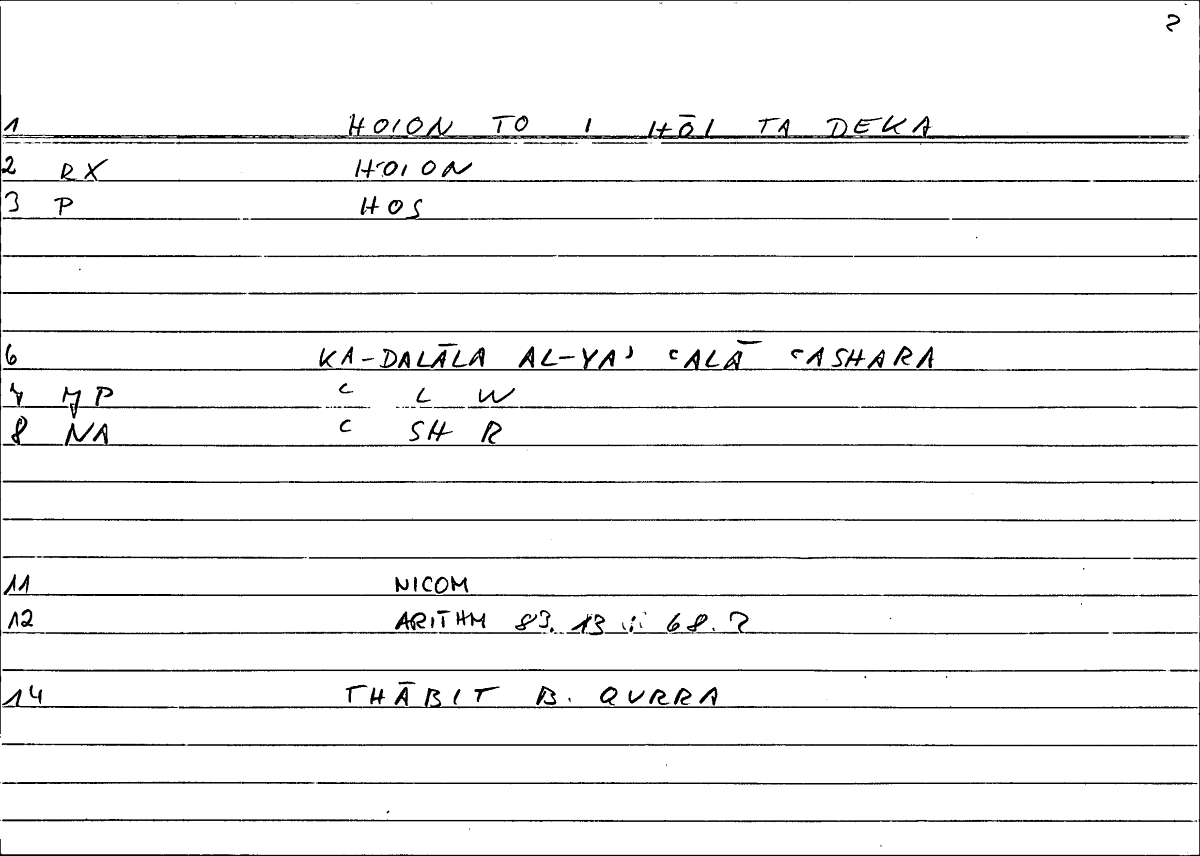 2
1 HOION TO I HŌI TA DEKA
2 RX HOION
3 P HOS
6 KA-DALĀLA AL-YAʾ ʿALĀ ʿASHARA
7 MP ʿ L W
8 NA ʿ SH R
11 NICOM
12 ARITHM 83.13 ⁝⁝ 68.2
14 THĀBIT B. QURRA